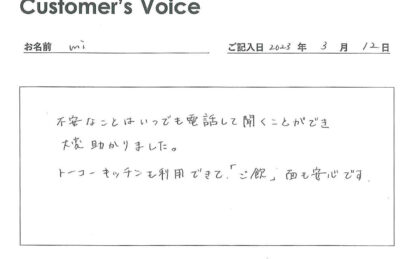 Customer's Voice
お名前 mi ご記入日 2023 年 3 月 12 日
不安なことはいつでも電話して聞くことができ
大変助かりました。
トーコーキッチンも利用できて、「ご飲」面も安心です.